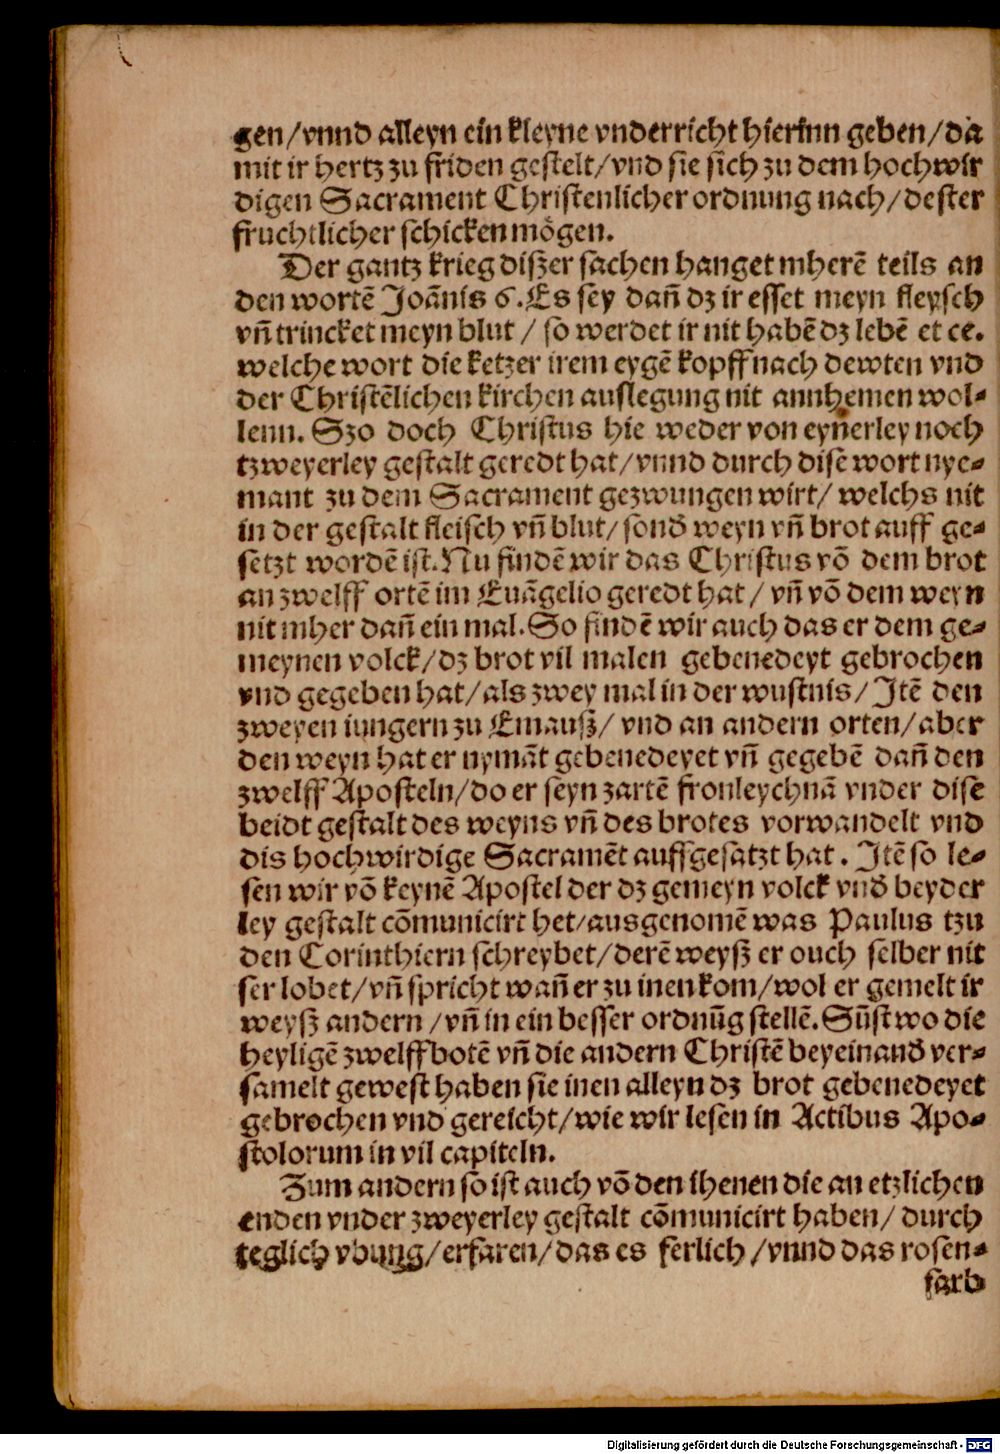 gen/vnnd alleyn ein kleyne vnderricht hierinn geben/da
mit ir hertz zu friden gestelt/vnd sie sich zu dem hochwir
digen Sacrament Christenlicher ordnung nach/dester
fruchtlicher schicken mögen.
Der gantz krieg diszer sachen hanget mherē teils an
den wortē Joānis 6. Es sey dañ dz ir esset meyn fleysch
vñ trincket meyn blut / so werdet ir nit habē dz lebē et ce.
welche wort die ketzer irem eygē kopff nach dewten vnd
der Christēlichen kirchen auslegung nit annhemen wol⸗
lenn. Szo doch Christus hie weder von eynerley noch
tzweyerley gestalt geredt hat/vnnd durch dise wort nye⸗
mant zu dem Sacrament gezwungen wirt/ welchs nit
in der gestalt fleisch vñ blut/sond̄ weyn vñ brot auff ge⸗
setzt wordē ist. Nu findē wir das Christus vō dem brot
an zwelff ortē im Euāgelio geredt hat / vñ vō dem weyn
nit mher dañ ein mal. So findē wir auch das er dem ge⸗
meynen volck/dz brot vil malen gebenedeyt gebrochen
vnd gegeben hat/als zwey mal in der wustnis/Jtē den
zweyen iungern zu Emausz/ vnd an andern orten/aber
den weyn hat er nymāt gebenedeyet vñ gegebē dañ den
zwelff Aposteln/do er seyn zartē fronleychnā vnder dise
beidt gestalt des weyns vñ des brotes vorwandelt vnd
dis hochwirdige Sacramēt auffgesatzt hat. Jtē so le⸗
sen wir vō keynē Apostel der dz gemeyn volck vnd̄ beyder
ley gestalt cōmunicirt het/ausgenomē was Paulus tzu
den Corinthiern schreybet/derē weysz er ouch selber nit
ser lobet/vñ spricht wañ er zu inen kom/wol er gemelt ir
weysz andern /vñ in ein besser ordnūg stellē. Sūst wo die
heyligē zwelffbotē vñ die andern Christē beyeinand̄ ver⸗
samelt gewest haben sie inen alleyn dz brot gebenedeyet
gebrochen vnd gereicht/wie wir lesen in Actibus Apo⸗
stolorum in vil capiteln.
Zum andern so ist auch vō den ihenen die an etzlichen
enden vnder zweyerley gestalt cōmunicirt haben/ durch
teglich vbung/erfaren/das es ferlich /vnnd das rosen⸗
farb
Digitalisierung gefördert durch die Deutsche Forschungsgemeinschaft - DFG